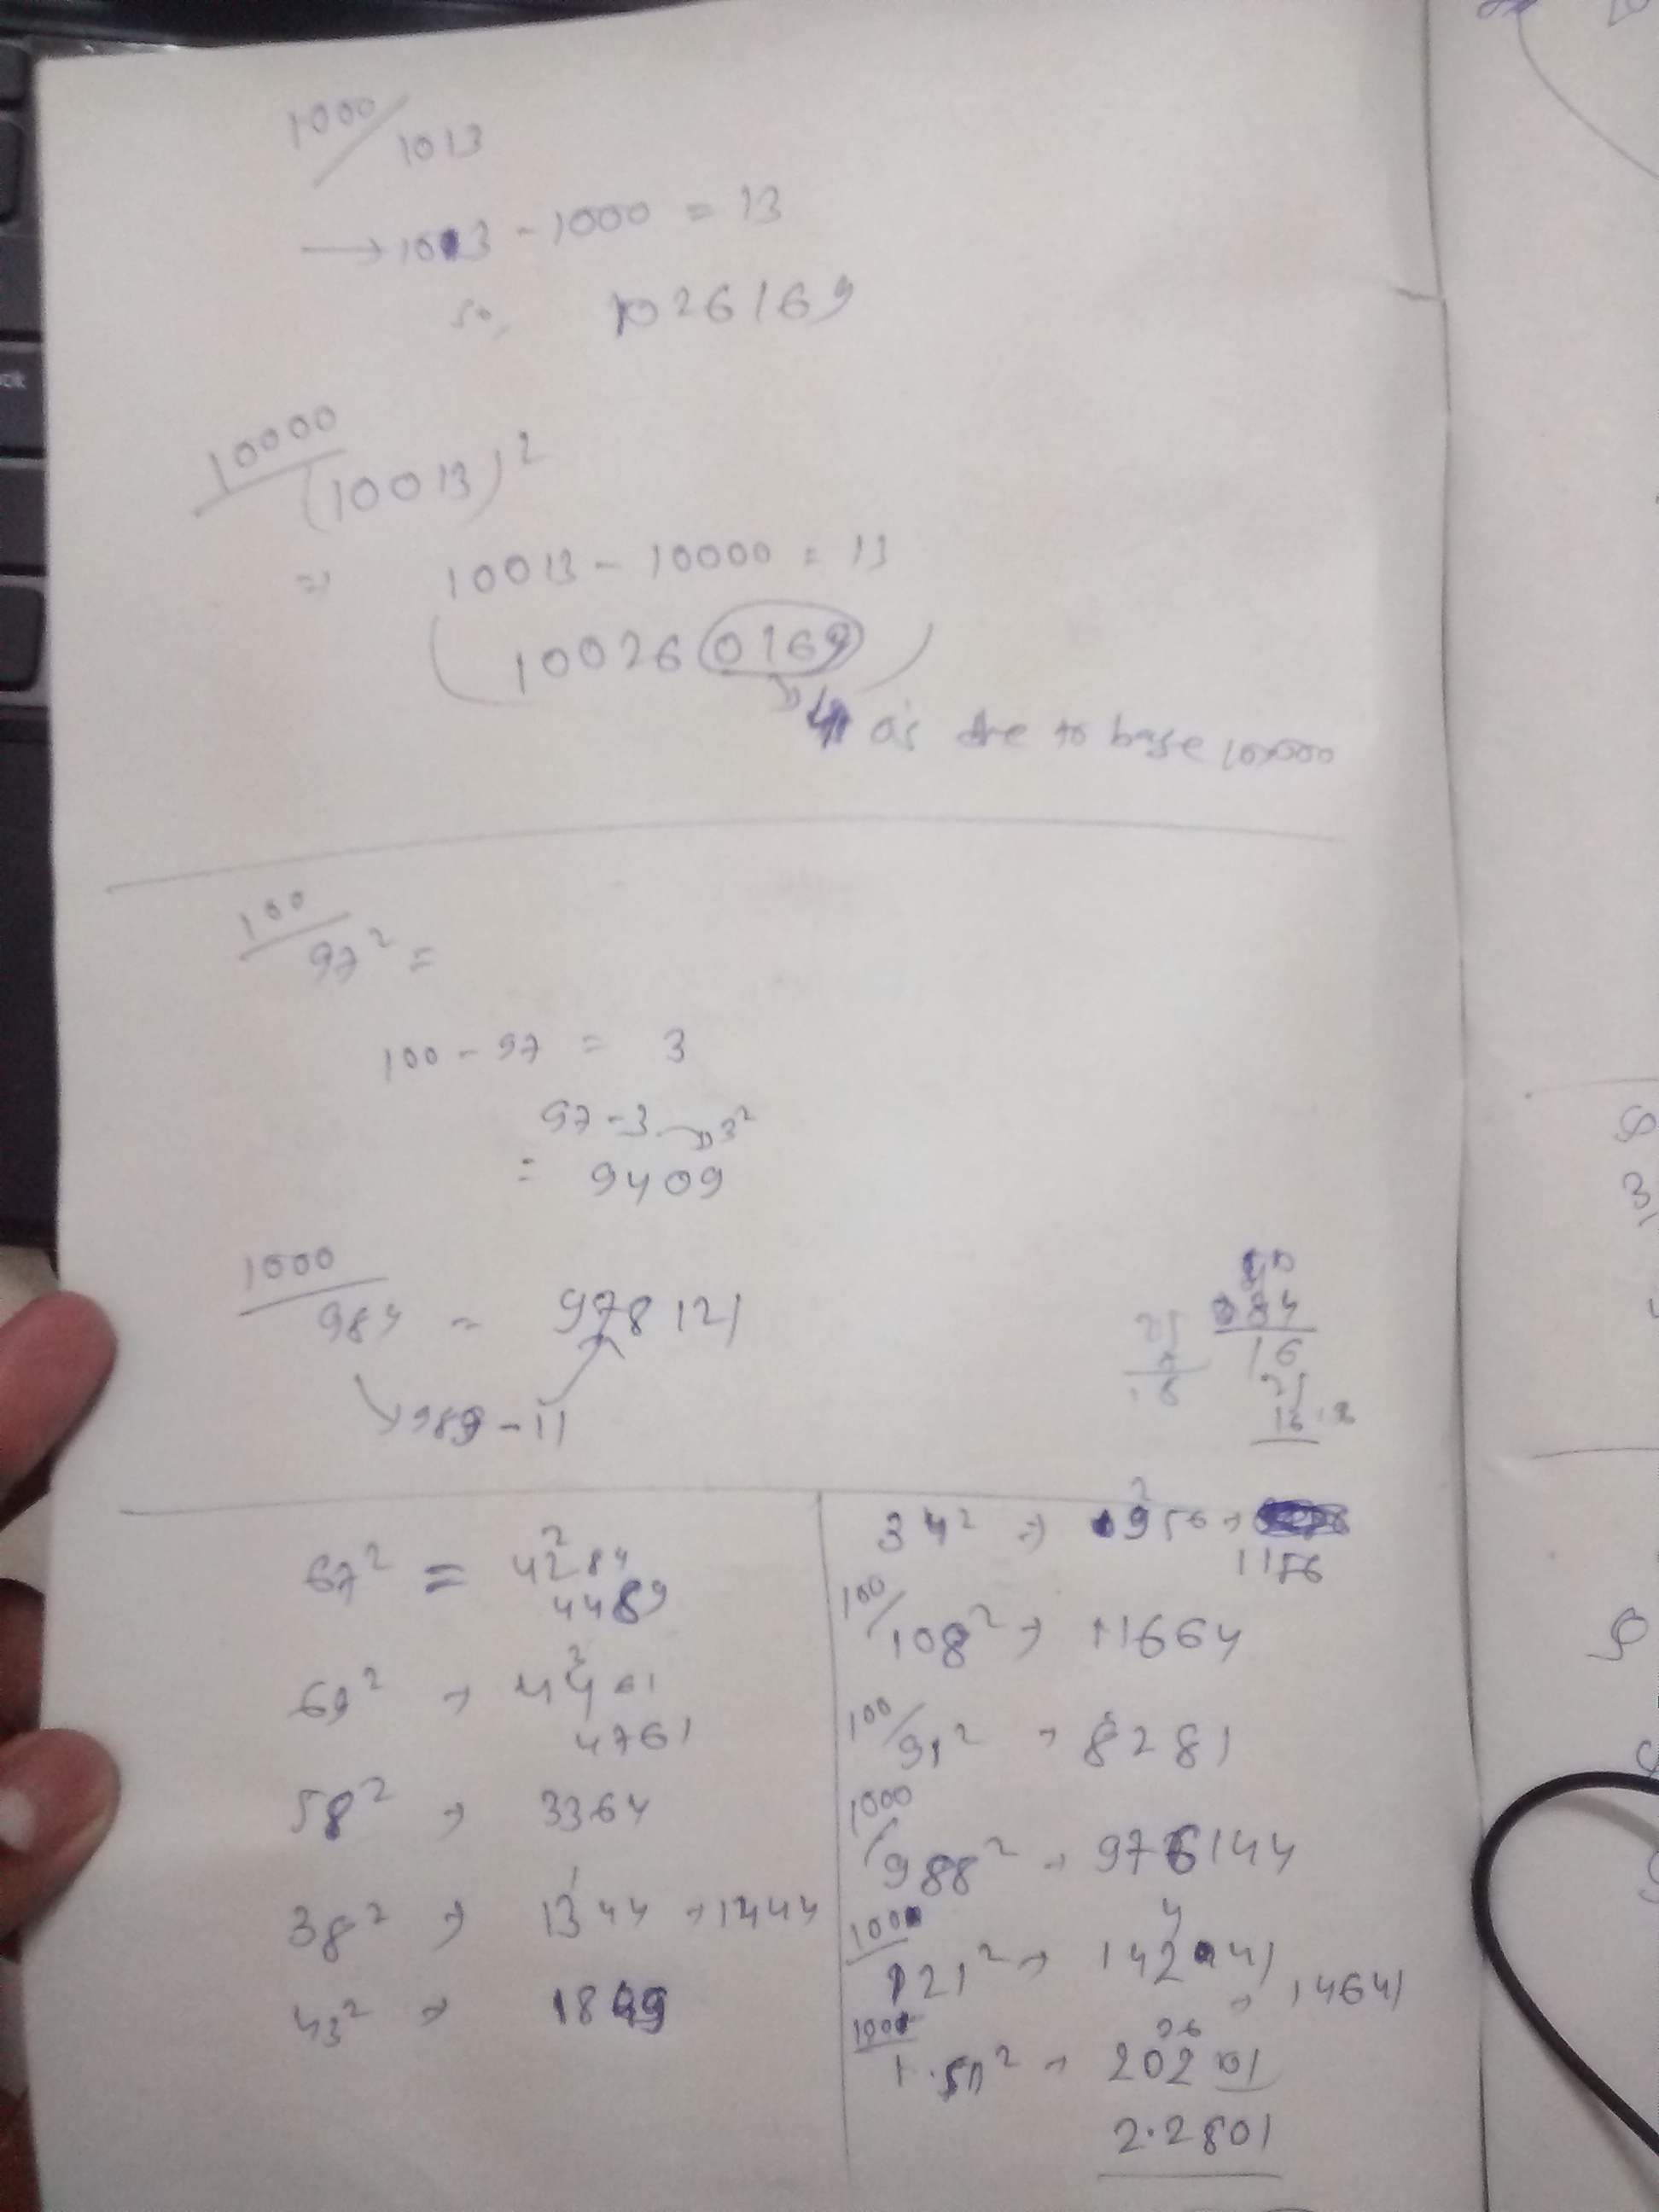 1000/1013
→ 1013 - 1000 = 13
so, 1026169
10000/(10013)²
⇒ 10013 - 10000 = 13
(100260169)
→ 4 0's due to base 10000
100/97² =
100 - 97 = 3
97 - 3 → 3²
= 9409
1000/984 = 978121
→ 989 - 11
84
16
25
67² = 4284
2
4489
69² → 4401
4761
58² → 3364
38² → 1344 → 1444
1
43² → 1849
34² ⇒ 956 →
2
1156
100/108² → 11664
100/91² → 8281
1000/988² → 976144
4
100/121² → 14241
→ 14641
1.51² → 20201
2.2801